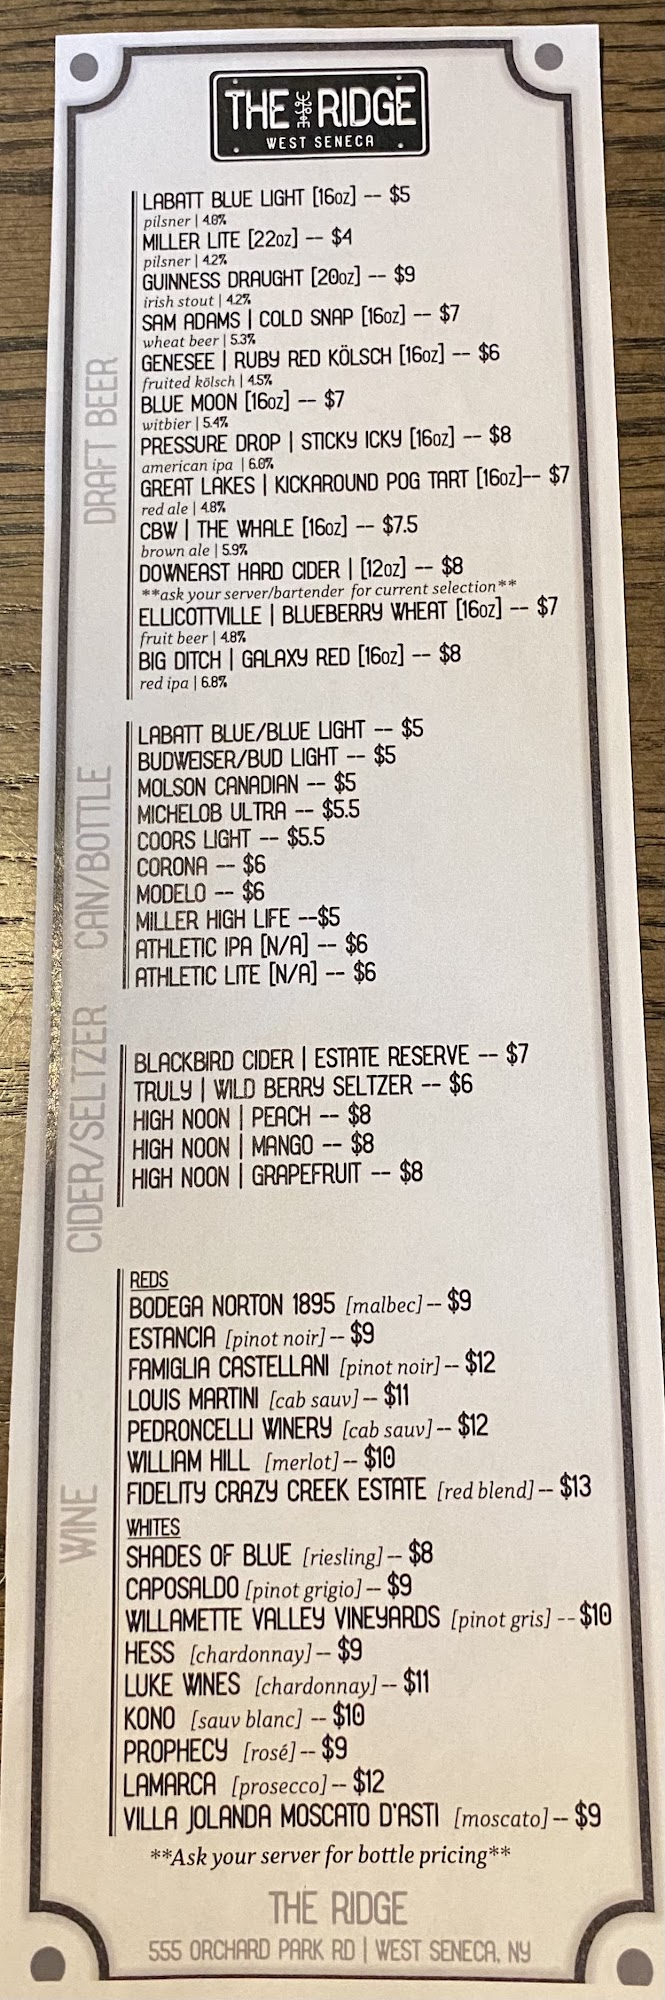 THE RIDGE
WEST SENECA
DRAFT BEER
LABATT BLUE LIGHT [16oz] -- $5
pilsner | 4.0%
MILLER LITE [22oz] -- $4
pilsner | 4.2%
GUINNESS DRAUGHT [20oz] -- $9
irish stout | 4.2%
SAM ADAMS | COLD SNAP [16oz] -- $7
wheat beer | 5.3%
GENESEE | RUBY RED KÖLSCH [16oz] -- $6
fruited kölsch | 4.5%
BLUE MOON [16oz] -- $7
witbier | 5.4%
PRESSURE DROP | STICKY ICKY [16oz] -- $8
american ipa | 6.0%
GREAT LAKES | KICKAROUND POG TART [16oz]-- $7
red ale | 4.8%
CBW | THE WHALE [16oz] -- $7.5
brown ale | 5.9%
DOWNEAST HARD CIDER | [12oz] -- $8
**ask your server/bartender for current selection**
ELLICOTTVILLE | BLUEBERRY WHEAT [16oz] -- $7
fruit beer | 4.8%
BIG DITCH | GALAXY RED [16oz] -- $8
red ipa | 6.8%
CAN/BOTTLE
LABATT BLUE/BLUE LIGHT -- $5
BUDWEISER/BUD LIGHT -- $5
MOLSON CANADIAN -- $5
MICHELOB ULTRA -- $5.5
COORS LIGHT -- $5.5
CORONA -- $6
MODELO -- $6
MILLER HIGH LIFE --$5
ATHLETIC IPA [N/A] -- $6
ATHLETIC LITE [N/A] -- $6
CIDER/SELTZER
BLACKBIRD CIDER | ESTATE RESERVE -- $7
TRULY | WILD BERRY SELTZER -- $6
HIGH NOON | PEACH -- $8
HIGH NOON | MANGO -- $8
HIGH NOON | GRAPEFRUIT -- $8
WINE
REDS
BODEGA NORTON 1895 [malbec] -- $9
ESTANCIA [pinot noir] -- $9
FAMIGLIA CASTELLANI [pinot noir] -- $12
LOUIS MARTINI [cab sauv] -- $11
PEDRONCELLI WINERY [cab sauv] -- $12
WILLIAM HILL [merlot] -- $10
FIDELITY CRAZY CREEK ESTATE [red blend] -- $13
WHITES
SHADES OF BLUE [riesling] -- $8
CAPOSALDO [pinot grigio] -- $9
WILLAMETTE VALLEY VINEYARDS [pinot gris] -- $10
HESS [chardonnay] -- $9
LUKE WINES [chardonnay] -- $11
KONO [sauv blanc] -- $10
PROPHECY [rosé] -- $9
LAMARCA [prosecco] -- $12
VILLA JOLANDA MOSCATO D'ASTI [moscato] -- $9
**Ask your server for bottle pricing**
THE RIDGE
555 ORCHARD PARK RD | WEST SENECA, NY